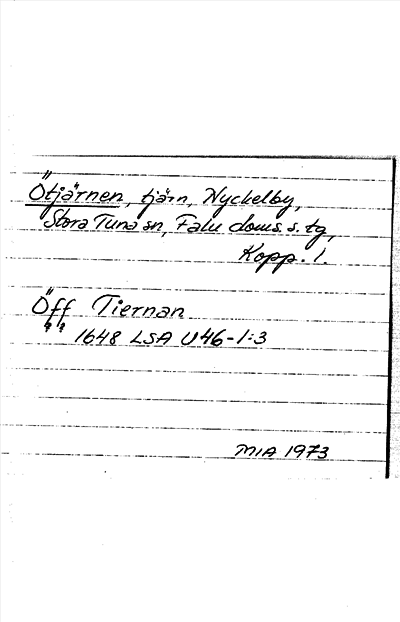 Ötjärnen, tjärn, Nyckelby,
Stora Tuna sn, Falu doms. s. tg,
Kopp. l.
Öff Tiernan
1648 LSA U46-1:3
MIA 1973